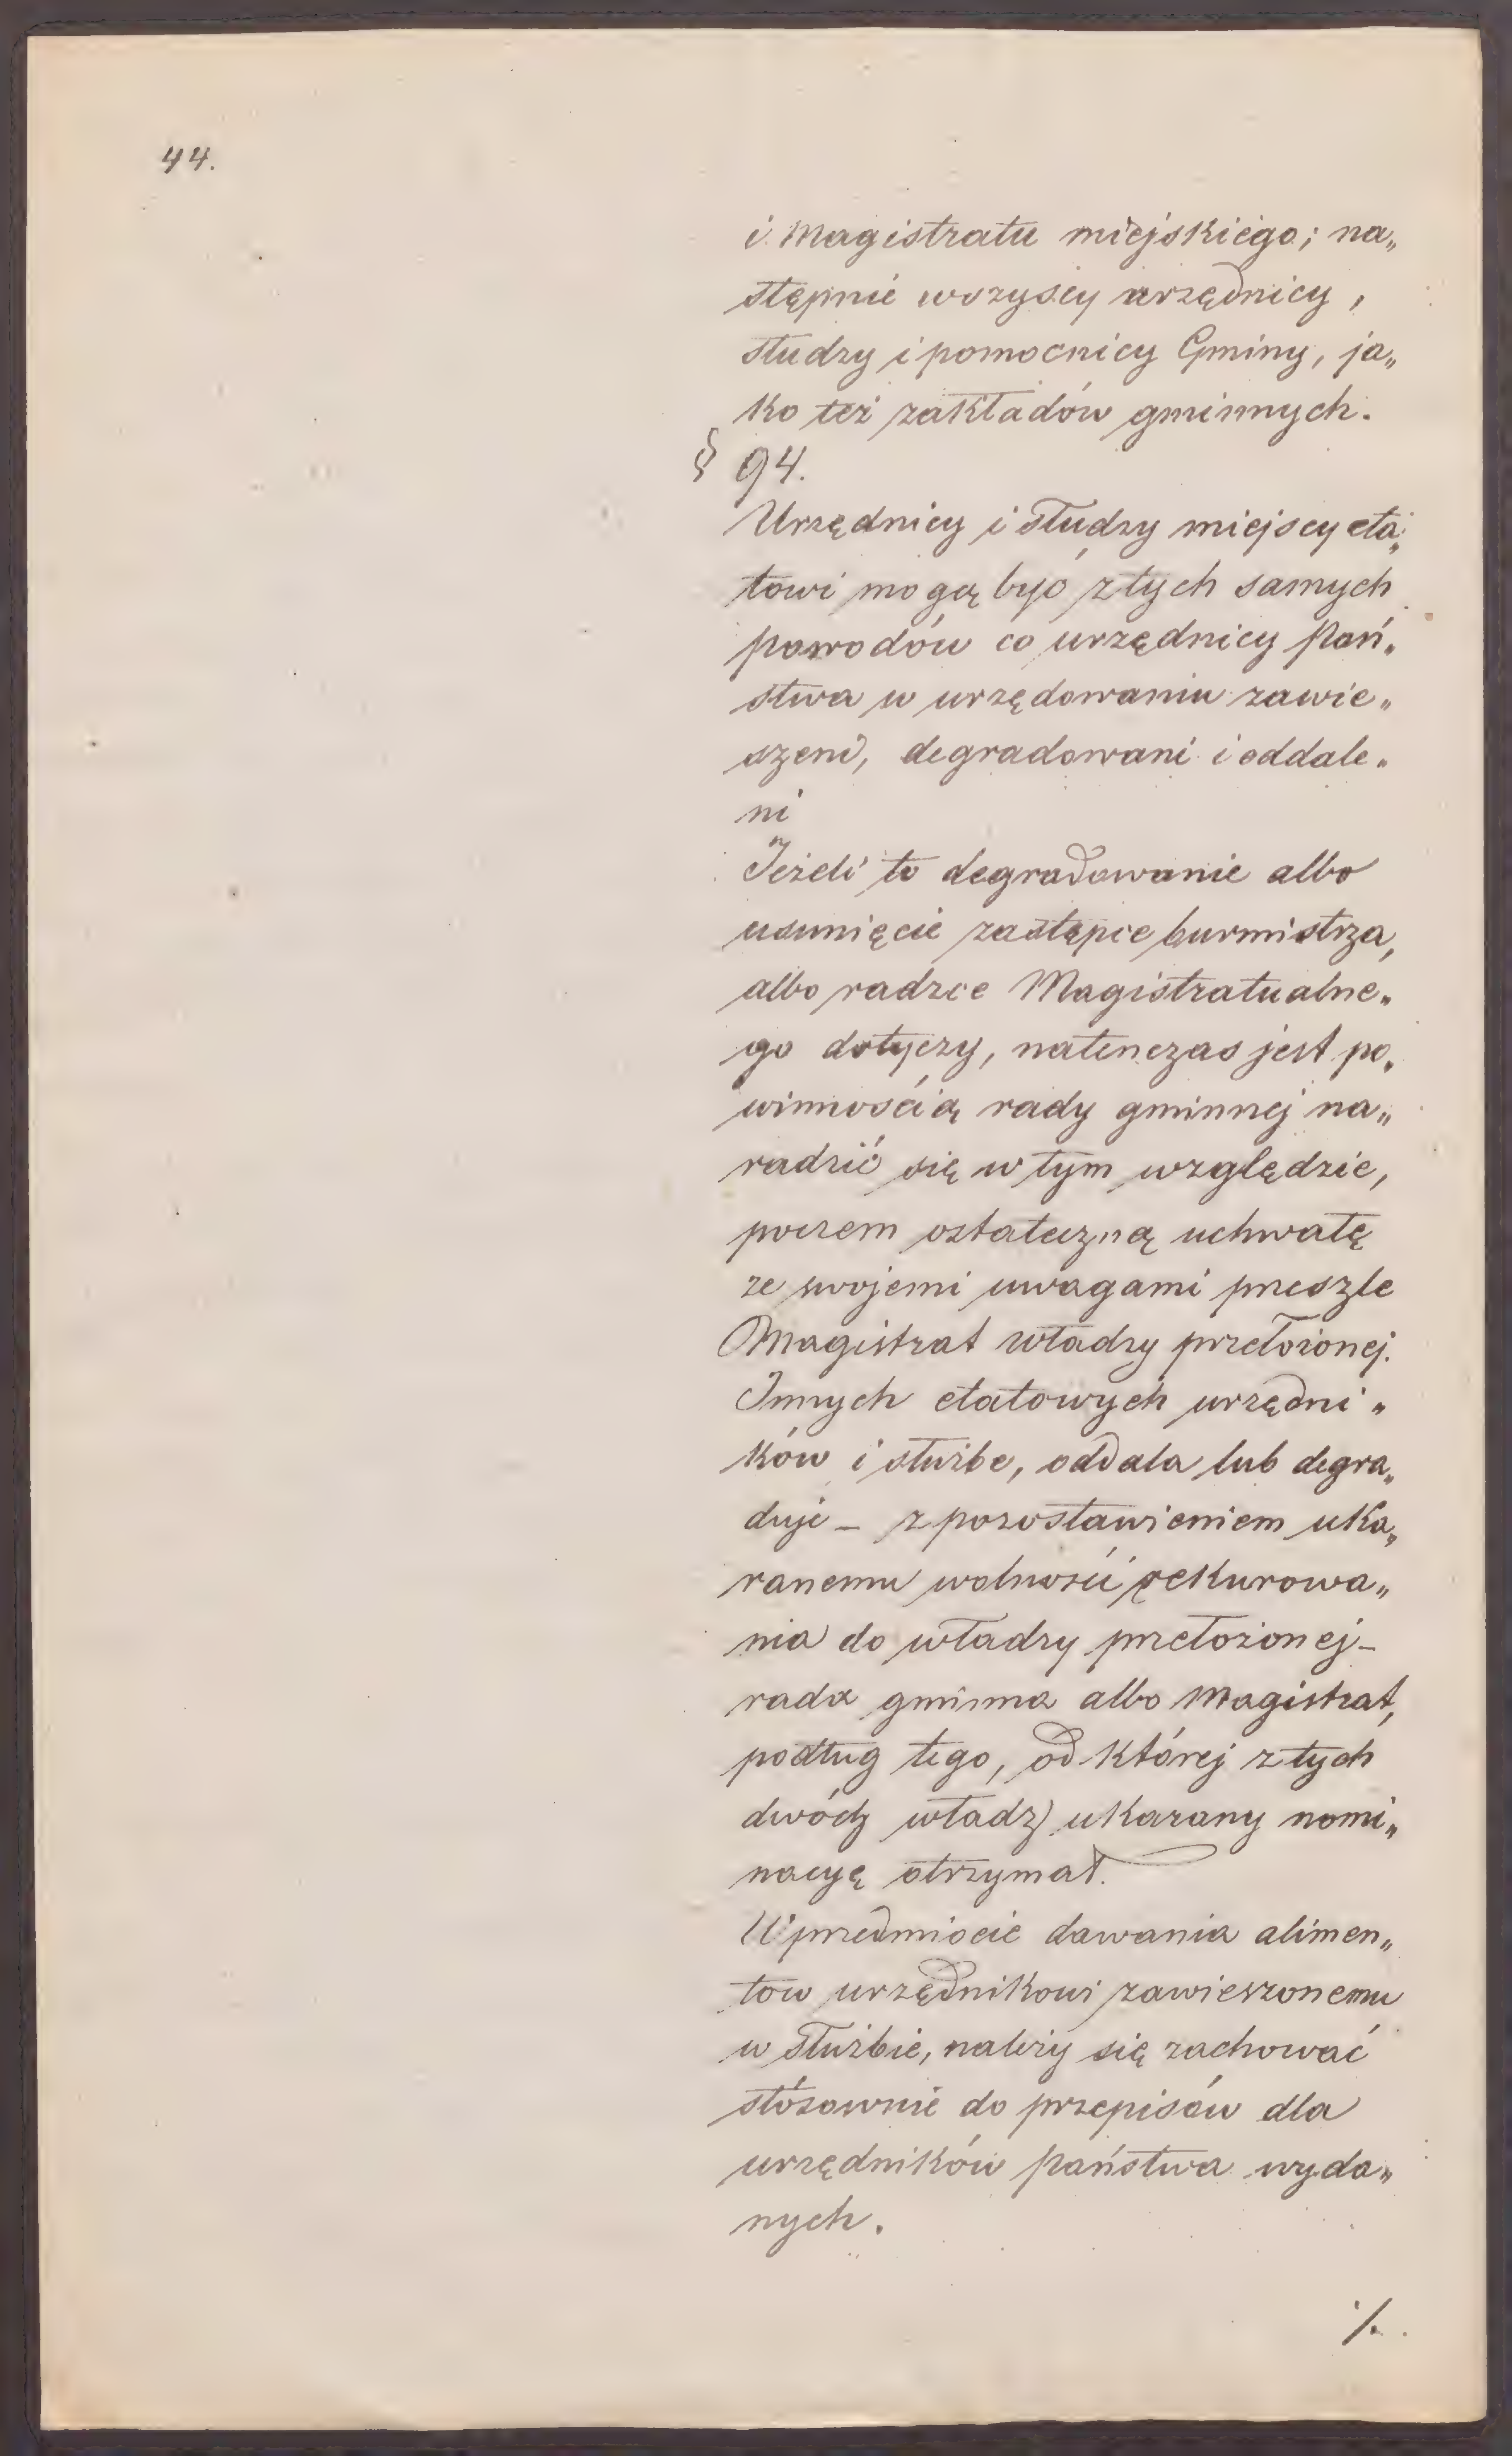 44.
i Magistratu miejskiego; na„
stępnie wszyscy urzędnicy,
słudzy i pomocnicy Gminy, ja„
ko też zakładów gminnych.
§ 94.
Urzędnicy i słudzy miejscy eta„
towi mogą być z tych samych
powodów co urzędnicy Pań„
stwa w urzędowaniu zawie„
szeni, degradowani i oddale„
ni
Jeżeli to degradowanie albo
usunięcie zastępce burmistrza,
albo radzce Magistratualne„
go dotyczy, natenczas jest po„
winnością rady gminnej na„
radzić się w tym względzie,
poczem ostateczną uchwałę
ze swojemi uwagami przeszle
Magistrat władzy przełożonej.
Innych etatowych urzędni„
ków i służbe, oddala lub degra„
duje – z pozostawieniem uka„
ranemu wolności rekurowa„
nia do władzy przełożonej –
rada gminna albo Magistrat,
podług tego, od której z tych
dwóch władz ukarany nomi„
nacyę otrzymał.
W przedmiocie dawania alimen„
tow urzędnikowi zawieszonemu
w służbie, należy się zachować
stósownie do przepisów dla
urzędników państwa wyda„
nych.
./.